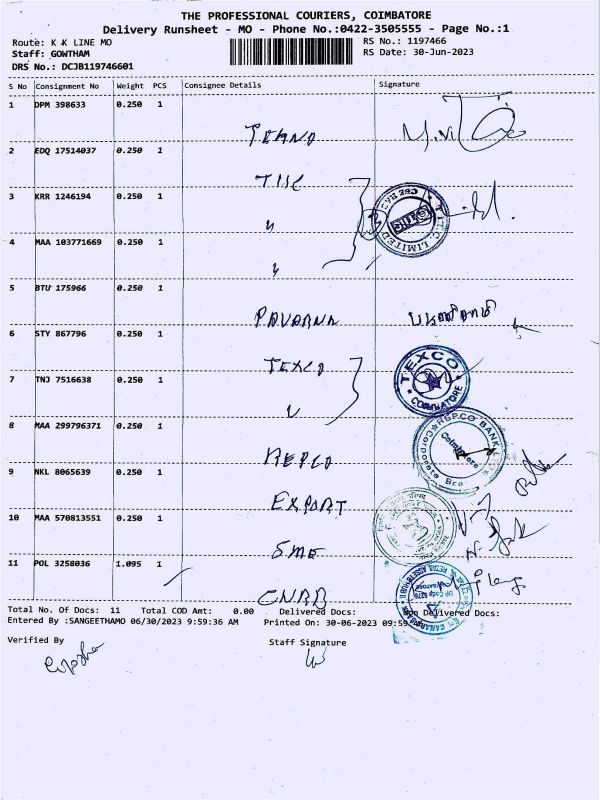 THE PROFESSIONAL COURIERS, COIMBATORE
Delivery Runsheet - MO - Phone No.:0422-3505555 - Page No.:1
Route: K K LINE MO
RS No.: 1197466
Staff: GOWTHAM
RS Date: 30-Jun-2023
DRS No.: DCJB119746601
S No Consignment No Weight PCS Consignee Details Signature
1 DPM 398633 0.250 1
2 EDQ 17514037 0.250 1
3 KRR 1246194 0.250 1
4 MAA 103771669 0.250 1
5 BTU 175966 0.250 1
PAVARNA
6 STY 867796 0.250 1
TEXCO
TEXCO
COIMBATORE
7 TNJ 7516638 0.250 1
8 MAA 299796371 0.250 1
REPCO BANK
Coimbatore
REPCO
9 NKL 8065639 0.250 1
EXPORT
10 MAA 570813551 0.250 1
SME
11 POL 3258036 1.095 1
CNRB
Total No. Of Docs: 11 Total COD Amt: 0.00 Delivered Docs: Non Delivered Docs:
Entered By :SANGEETHAMO 06/30/2023 9:59:36 AM Printed On: 30-06-2023 09:59
Verified By Staff Signature